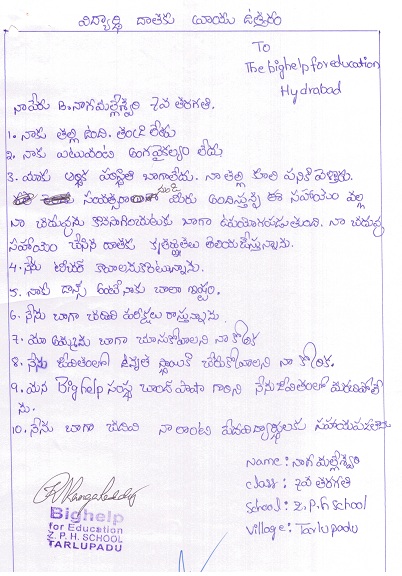 విద్యార్థి దాతకు రాయు ఉత్తరం
To
The bighelp for education
Hydrabad
నాపేరు B. నాగమల్లేశ్వరి 7వ తరగతి.
1. నాకు తల్లి ఉంది. తండ్రి లేడు
2. నాకు ఎటువంటి అంగవైకల్యం లేదు
3. మాకు ఆర్థిక స్థోమతి బాగాలేదు. నా తల్లి కూలి పనికి వెళ్తారు.
సంవత్సరా నుండి మీరు అందిస్తున్న ఈ సహాయం వల్ల
నా చదువును కొనసాగించుటకు బాగా ఉపయోగపడుతుంది. నా చదువు
సహాయం చేసిన దాతకు కృతజ్ఞతలు తెలియజేస్తున్నాను.
4. నేను టీచర్ కావాలనుకుంటున్నాను.
5. నాకు డాన్స్ అంటే నాకు చాలా ఇష్టం.
6. నేను బాగా చదివి పరీక్షలు రాస్తున్నాను.
7. మా అమ్మను బాగా చూసుకోవాలని నా కోరిక
8. నేను జీవితంలో ఉన్నత స్థాయికి చేరుకోవాలని నా కోరిక.
9. మన Bighelp సంస్థ చాంద్ పాషా గారిని నేను జీవితంలో మరచిపోలే
ను.
10. నేను బాగా చదివి నాలాంటి పేదవిద్యార్థులకు సహాయపడతాను
Name : నాగమల్లేశ్వరి
class : 7వ తరగతి
School : Z.P.H School
Village : Tarlupadu
Bighelp
for Education
Z. P. H. SCHOOL
TARLUPADU